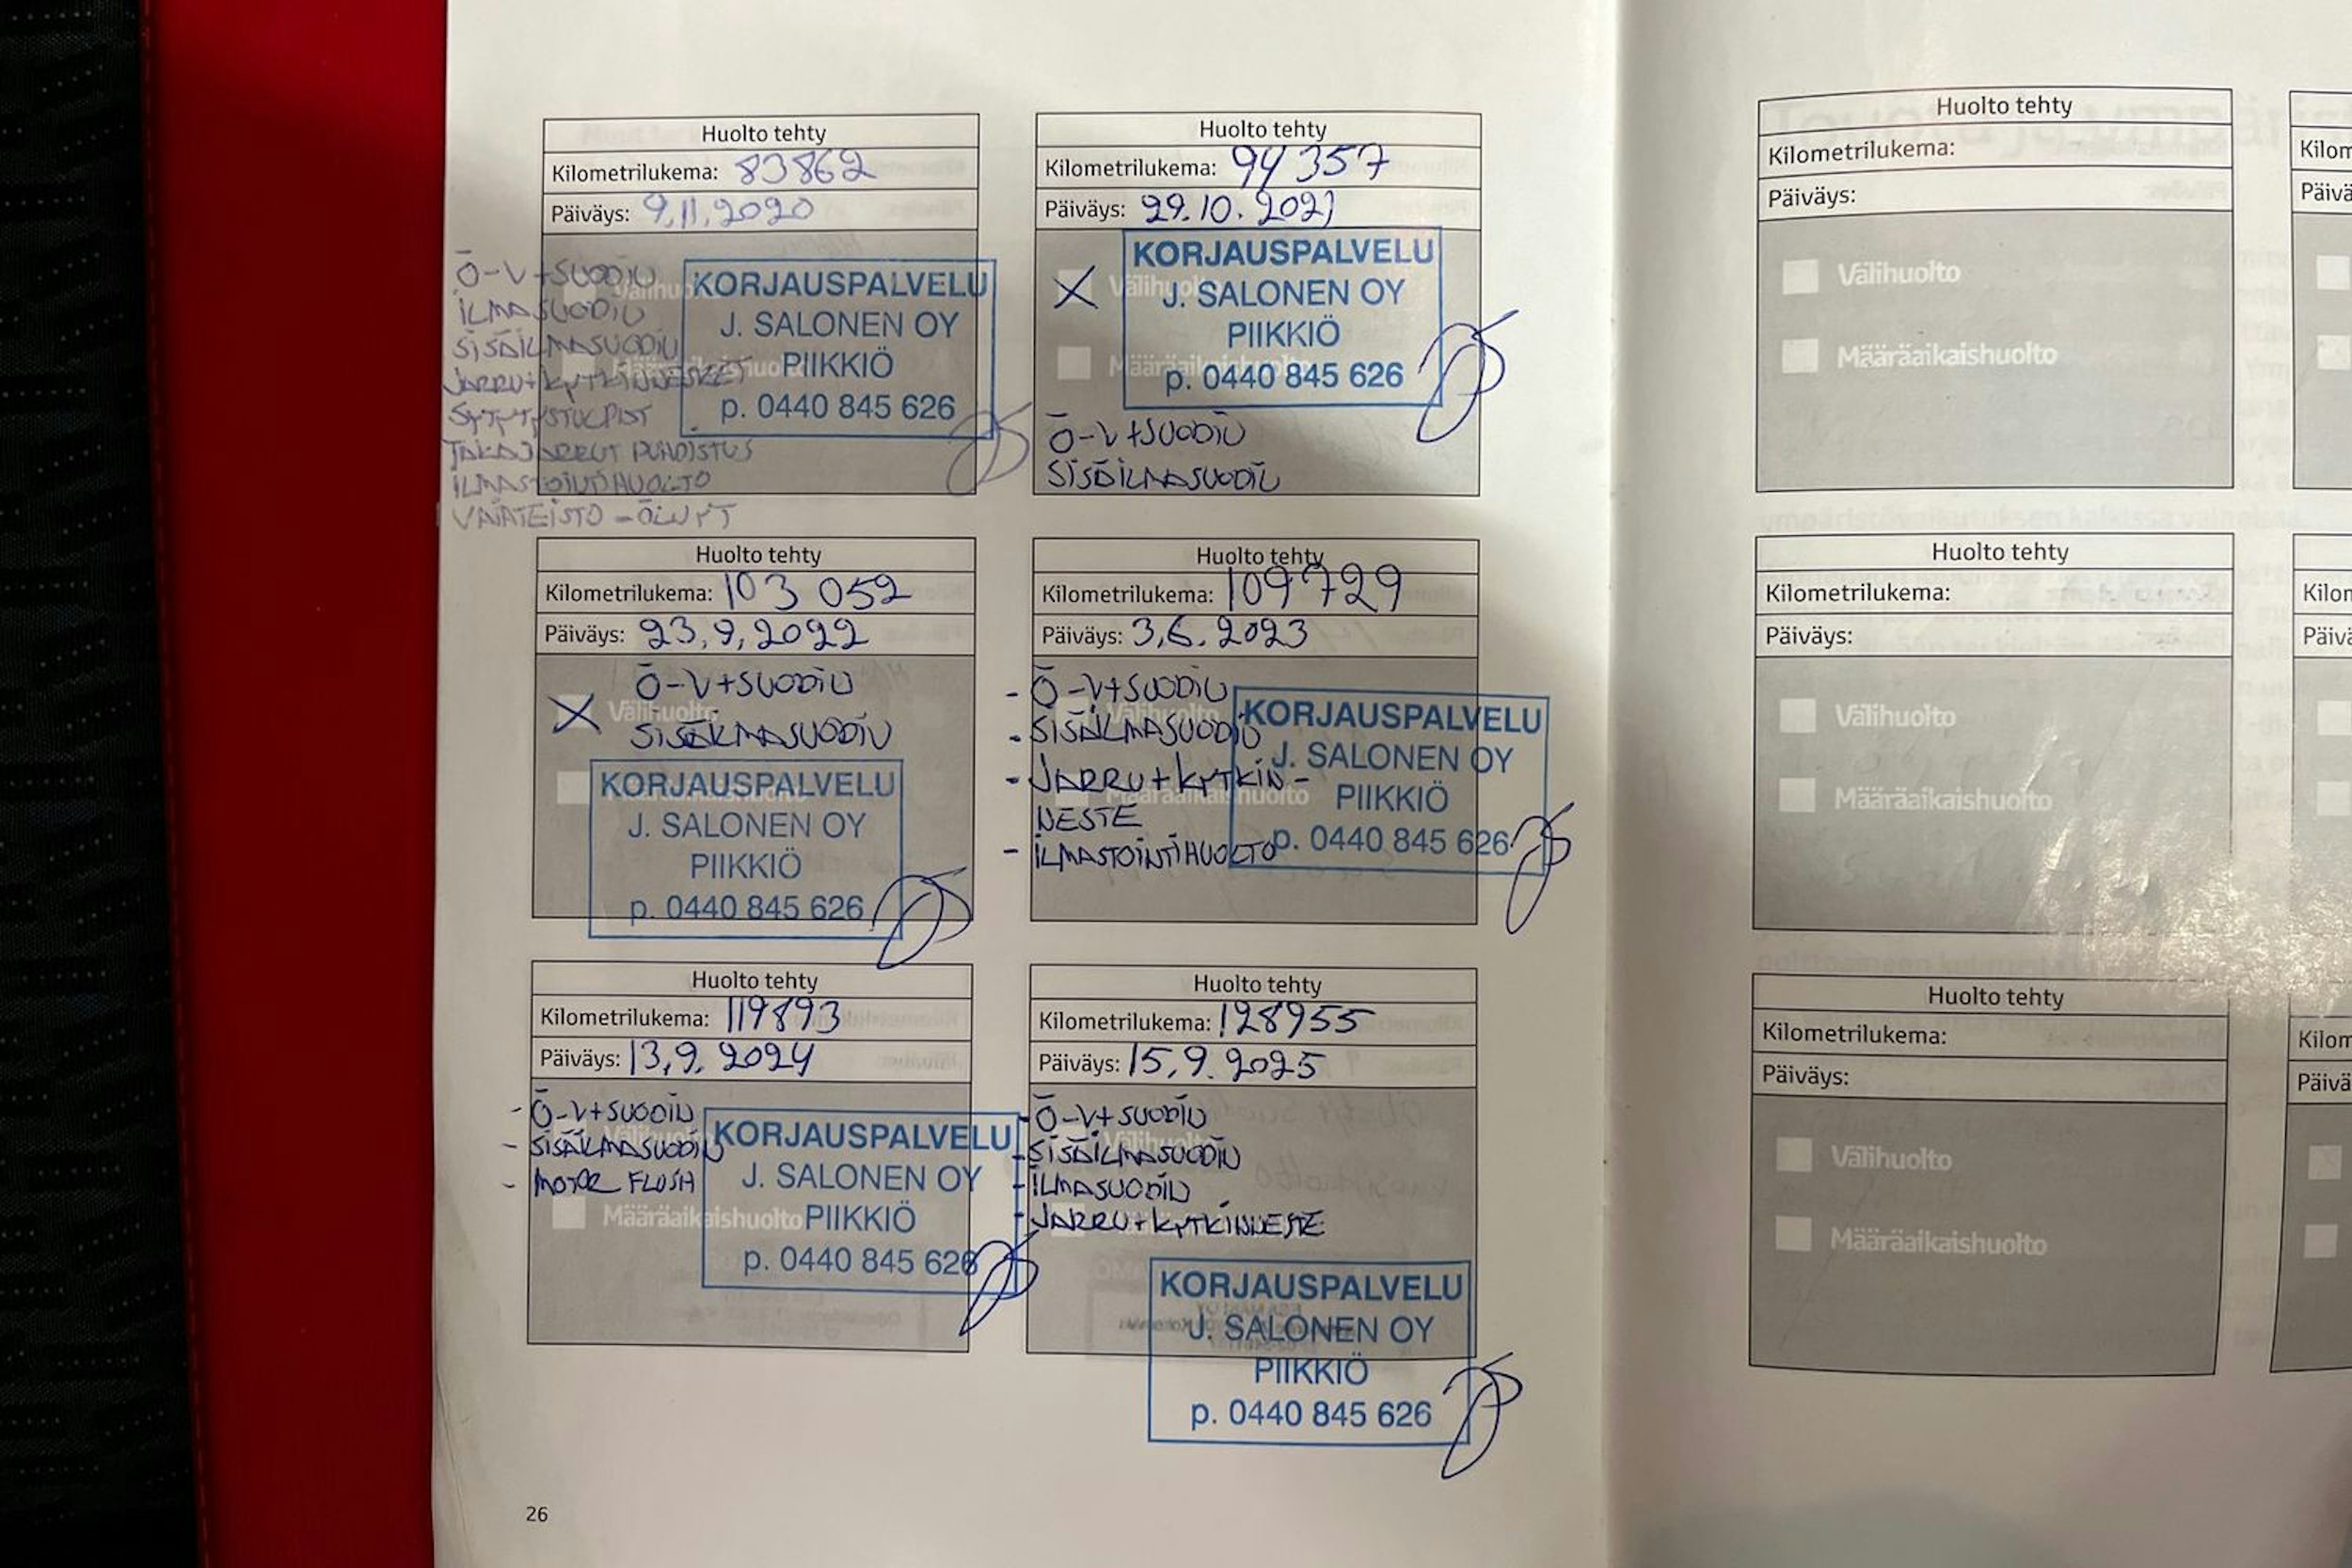 Huolto tehty
Kilometrilukema: 83862
Päiväys: 9.11.2020
Ö-V+SUODIN
ILMASUODIN
SISÄILMASUODIN
JARRU+KYTKINNESTEET
SYTYTYSTULPAT
TAKAJARRUT PUHDISTUS
ILMASTOINTIHUOLTO
VAIHTEISTO-ÖLJYT
Välihuolto
Määräaikaishuolto
KORJAUSPALVELU
J. SALONEN OY
PIIKKIÖ
p. 0440 845 626
Huolto tehty
Kilometrilukema: 94 357
Päiväys: 29.10.2021
Välihuolto
Määräaikaishuolto
KORJAUSPALVELU
J. SALONEN OY
PIIKKIÖ
p. 0440 845 626
Ö-V+SUODIN
SISÄILMASUODIN
Huolto tehty
Kilometrilukema: 103 052
Päiväys: 23.9.2022
Ö-V+SUODIN
Välihuolto
SISÄILMASUODIN
Määräaikaishuolto
KORJAUSPALVELU
J. SALONEN OY
PIIKKIÖ
p. 0440 845 626
Huolto tehty
Kilometrilukema: 109 729
Päiväys: 3.6.2023
- Ö-V+SUODIN
Välihuolto
- SISÄILMASUODIN
- JARRU+KYTKIN-
Määräaikaishuolto
NESTE
- ILMASTOINTIHUOLTO
KORJAUSPALVELU
J. SALONEN OY
PIIKKIÖ
p. 0440 845 626
Huolto tehty
Kilometrilukema: 119893
Päiväys: 13.9.2024
- Ö-V+SUODIN
Välihuolto
- SISÄILMASUODIN
- MOTOR FLUSH
Määräaikaishuolto
KORJAUSPALVELU
J. SALONEN OY
PIIKKIÖ
p. 0440 845 626
Huolto tehty
Kilometrilukema: 128955
Päiväys: 15.9.2025
- Ö-V+SUODIN
Välihuolto
- SISÄILMASUODIN
- ILMASUODIN
- JARRU+KYTKINNESTE
KORJAUSPALVELU
J. SALONEN OY
PIIKKIÖ
p. 0440 845 626
26
Huolto tehty
Kilometrilukema:
Päiväys:
Välihuolto
Määräaikaishuolto
Huolto tehty
Kilometrilukema:
Päiväys:
Välihuolto
Määräaikaishuolto
Huolto tehty
Kilometrilukema:
Päiväys:
Välihuolto
Määräaikaishuolto